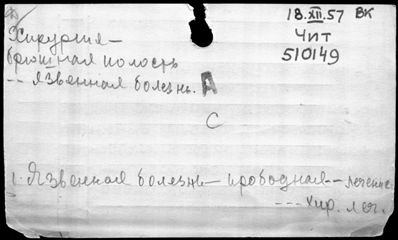 18.XII.57 ВК
Хирургия —
брюшная полость
-- язвенная болезнь.
Чит
510149
А
С
1. Язвенная болезнь — прободная — лечение
--- хир. леч.